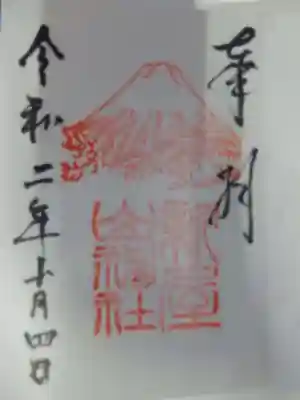 奉拝
新屋
山神社
令和二年十月四日